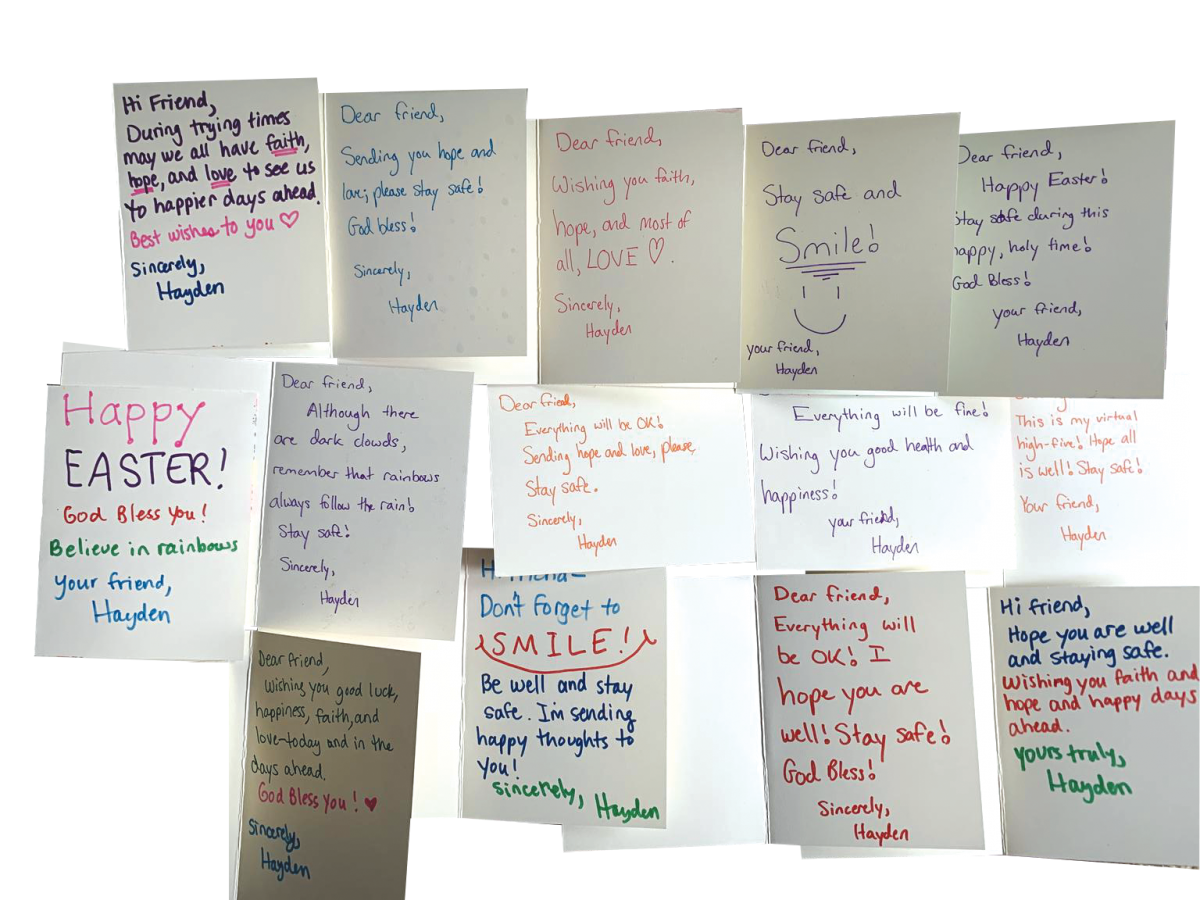 Hi Friend,
During trying times
may we all have faith,
hope, and love to see us
to happier days ahead.
Best wishes to you ♡
Sincerely,
Hayden
Dear friend,
Sending you hope and
love; please stay safe!
God bless!
Sincerely,
Hayden
Dear friend,
Wishing you faith,
hope, and most of
all, LOVE ♡.
Sincerely,
Hayden
Dear friend,
Stay safe and
Smile!
your friend,
Hayden
Dear friend,
Happy Easter!
Stay safe during this
happy, holy time!
God Bless!
your friend,
Hayden
Happy
EASTER!
God Bless You!
Believe in rainbows
your friend,
Hayden
Dear friend,
Although there
are dark clouds,
remember that rainbows
always follow the rain!
Stay safe!
Sincerely,
Hayden
Dear friend,
Everything will be OK!
Sending hope and love, please
Stay safe.
Sincerely,
Hayden
Everything will be fine!
Wishing you good health and
happiness!
your friend,
Hayden
This is my virtual
high-five! Hope all
is well! Stay safe!
Your friend,
Hayden
Dear friend,
Wishing you good luck,
happiness, faith, and
love-today and in the
days ahead.
God Bless You! ♥
Sincerely,
Hayden
Hi friend-
Don't forget to
SMILE!
Be well and stay
safe. I'm sending
happy thoughts to
you!
sincerely, Hayden
Dear friend,
Everything will
be OK! I
hope you are
well! Stay safe!
God Bless!
Sincerely,
Hayden
Hi friend,
Hope you are well
and staying safe.
Wishing you faith and
hope and happy days
ahead.
yours truly,
Hayden